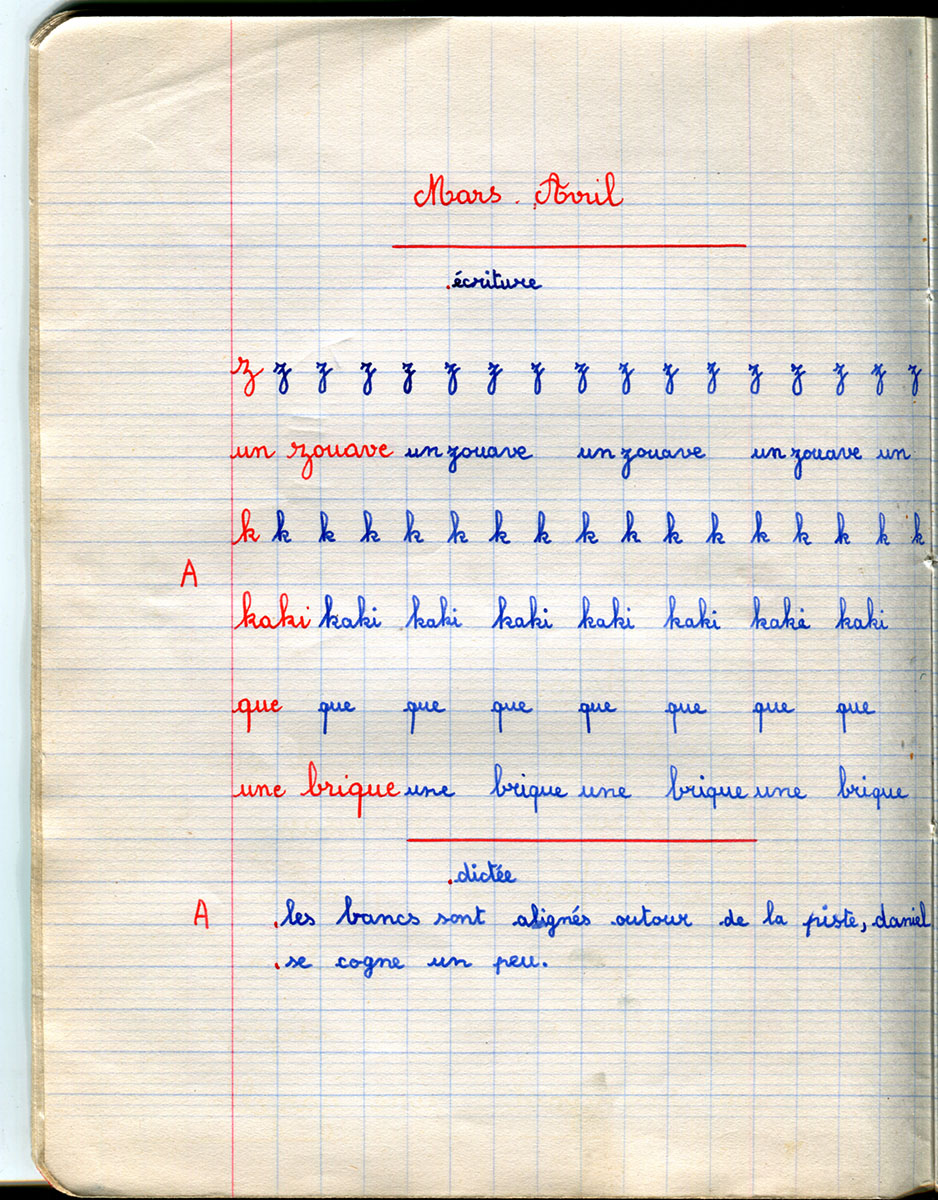 Mars. Avril
.écriture
z z z z z z z z z z z z z z z z z
un zouave un zouave un zouave un zouave un
k k k k k k k k k k k k k k k k k
A
kaki kaki kaki kaki kaki kaki kaki kaki
que que que que que que que que
une brique une brique une brique une brique
.dictée
A .les bancs sont alignés autour de la piste, daniel
.se cogne un peu.